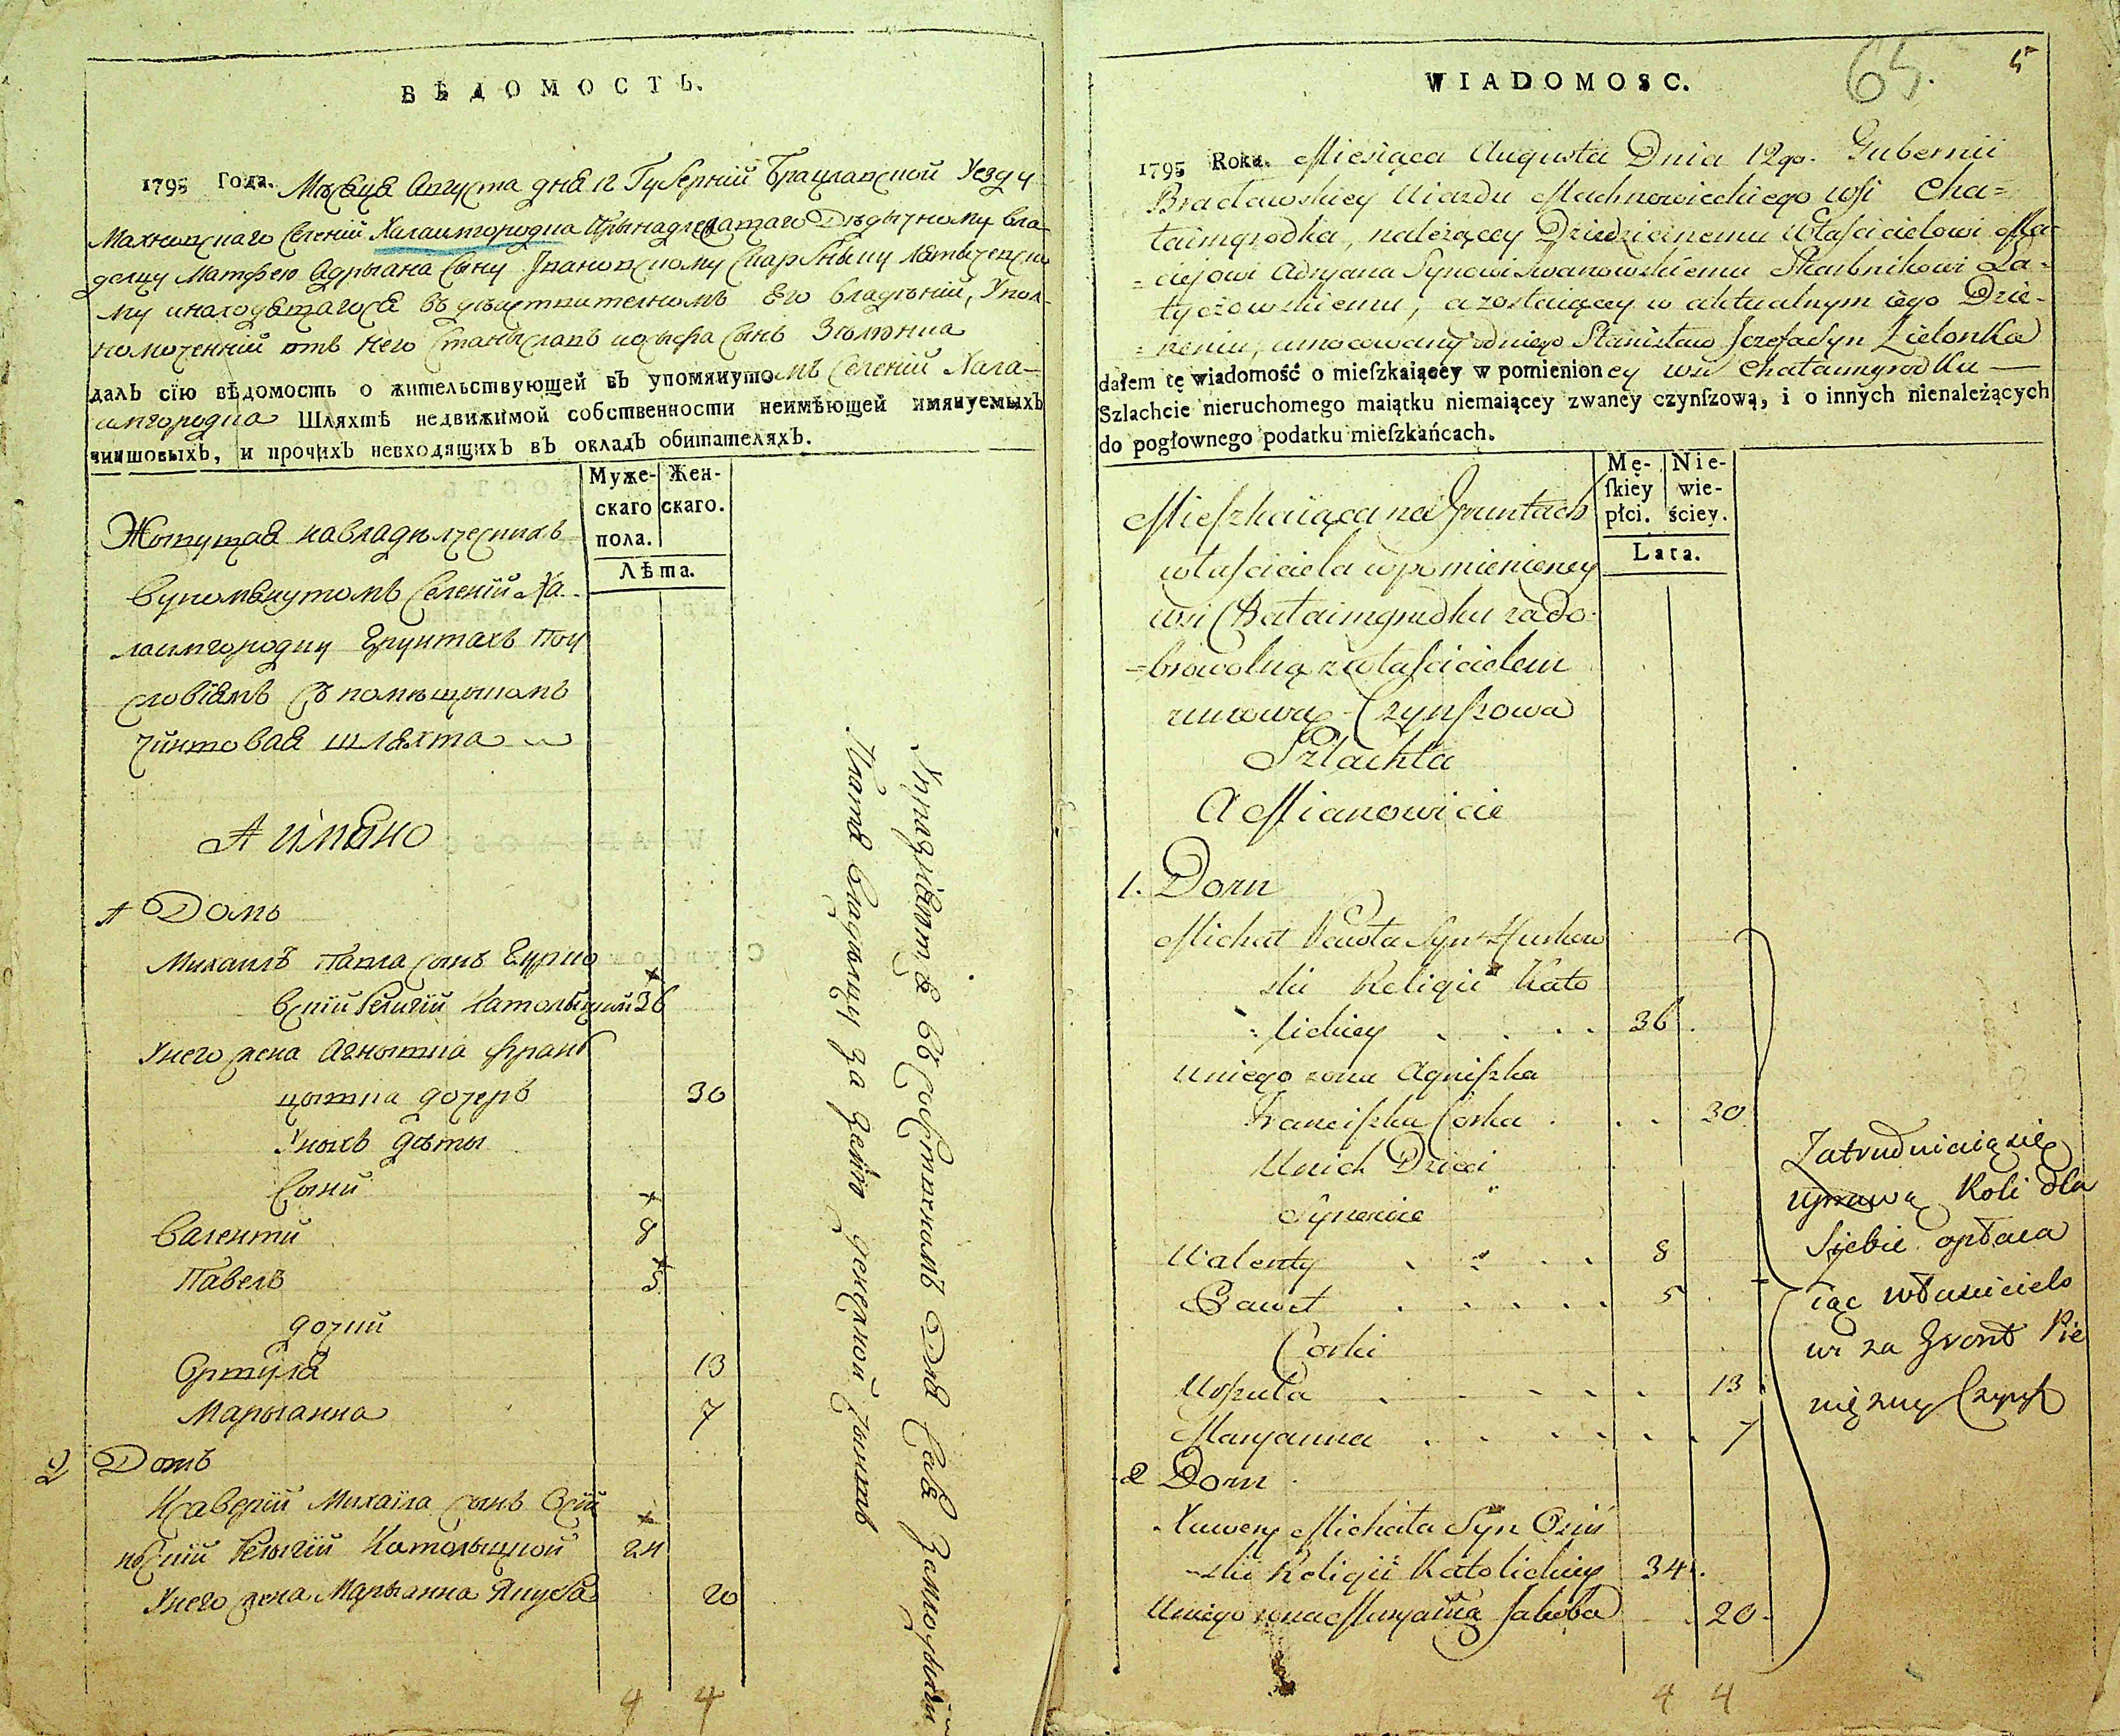 ВѢДОМОСТЬ.
1795 Года. Мѣсяца Августа дня 12 Губерній Брацлавской Уезду
Махновскаго Селеній Халаимгородка Прынадлежатаго Дѣдычному вла-
делцу Матфею Адрыана Сыну Ивановскому Скарбныку Латычевско
му инаходятагося въ дѣйствителномъ Его владѣній, Упол-
номоченній отъ него Станыславъ иосыфа Сынъ Зѣлюнка
далъ сїю вѣдомость о жительствующей въ упомянутомъ Селеній Хала-
имгородка Шляхтѣ недвижимой собственности неимѣющей имянуемыхъ
чиншовыхъ, и прочихъ невходящихъ въ окладъ обитателяхъ.
Муже- Жен-
скаго скаго.
пола.
Лѣта.
Жывущая на
вупомянутомъ Селеній Ха-
лаимгородку Грунтахъ поу
словіямъ съ помѣщыкомъ
чиншовая шляхта
А имяно
1 Домъ
Михаилъ Павла сынъ Гурко
вскій Религій Католыцкой 36
Унего жена Агнышка Фран
цышка дочеръ 30
Уныхъ дѣты
Сыни
Валенти 8
Павелъ 5
дочки
Оршуля 13
Марыанна 7
2 Домъ
Ксаверій Михаіла сынъ Осѣй
нскій Релыгій Католыцкой 24
Унего жена Марыанна Якуба 20
4 4
Упражняются въ собственомъ для себя
Платя владѣлцу за землю денежной чыншъ
WIADOMOSC.
65. 5
1795 Roku. Miesiąca Augusta Dnia 12go. Gubernii
Bracławskiey Uiazdu Machnowieckiego wsi Cha=
łaimgrodka, należącey Dziedzicznemu Właścicielowi Ma-
=ciejowi Adryana Synowi Iwanowskiemu Skarbnikowi La-
tyczowskiemu, a zostaiącey w aktualnym iego Dzie-
=rzeniu, umocowany odniego Stanisław Jozefa Syn Zielonka
dałem tę wiadomość o mieſzkaiącey w pomienioney wsi Chałaimgrodku —
Szlachcie nieruchomego maiątku niemaiącey zwaney czynſzową, i o innych nienależących
do pogłownego podatku mieſzkańcach.
Mę- Nie-
ſkiey wie-
płci. ściey.
Lata.
Mieſzkaiąca na Gruntach
właściciela wpomienioney
wsi Chałaimgrodku zado-
=browolną zwłaścicielem
umową Czynſzowa
Szlachta
A Mianowicie
1. Dom
Michał Pawła Syn Hurkow
ski Religii Kato
=lickiey . . . . 36.
Uniego żona Agniſzka
Franciſzka Corka . . . 30
Unich Dzieci
Synowie
Walenty . . . . 8
Paweł . . . . . 5
Corki
Urſzula . . . . . 13
Maryanna . . . . . . 7
2 Dom
Xawery Michała Syn Osiń
-ski Religii Katolickiey 34.
Uniego żona Maryanna Jakoba 20.
Zatrudniaią się
uprawą Roli dla
Siebie opłaca
iąc właścicielo
wi za Grunt Pie
niężny Czynſz
4 4